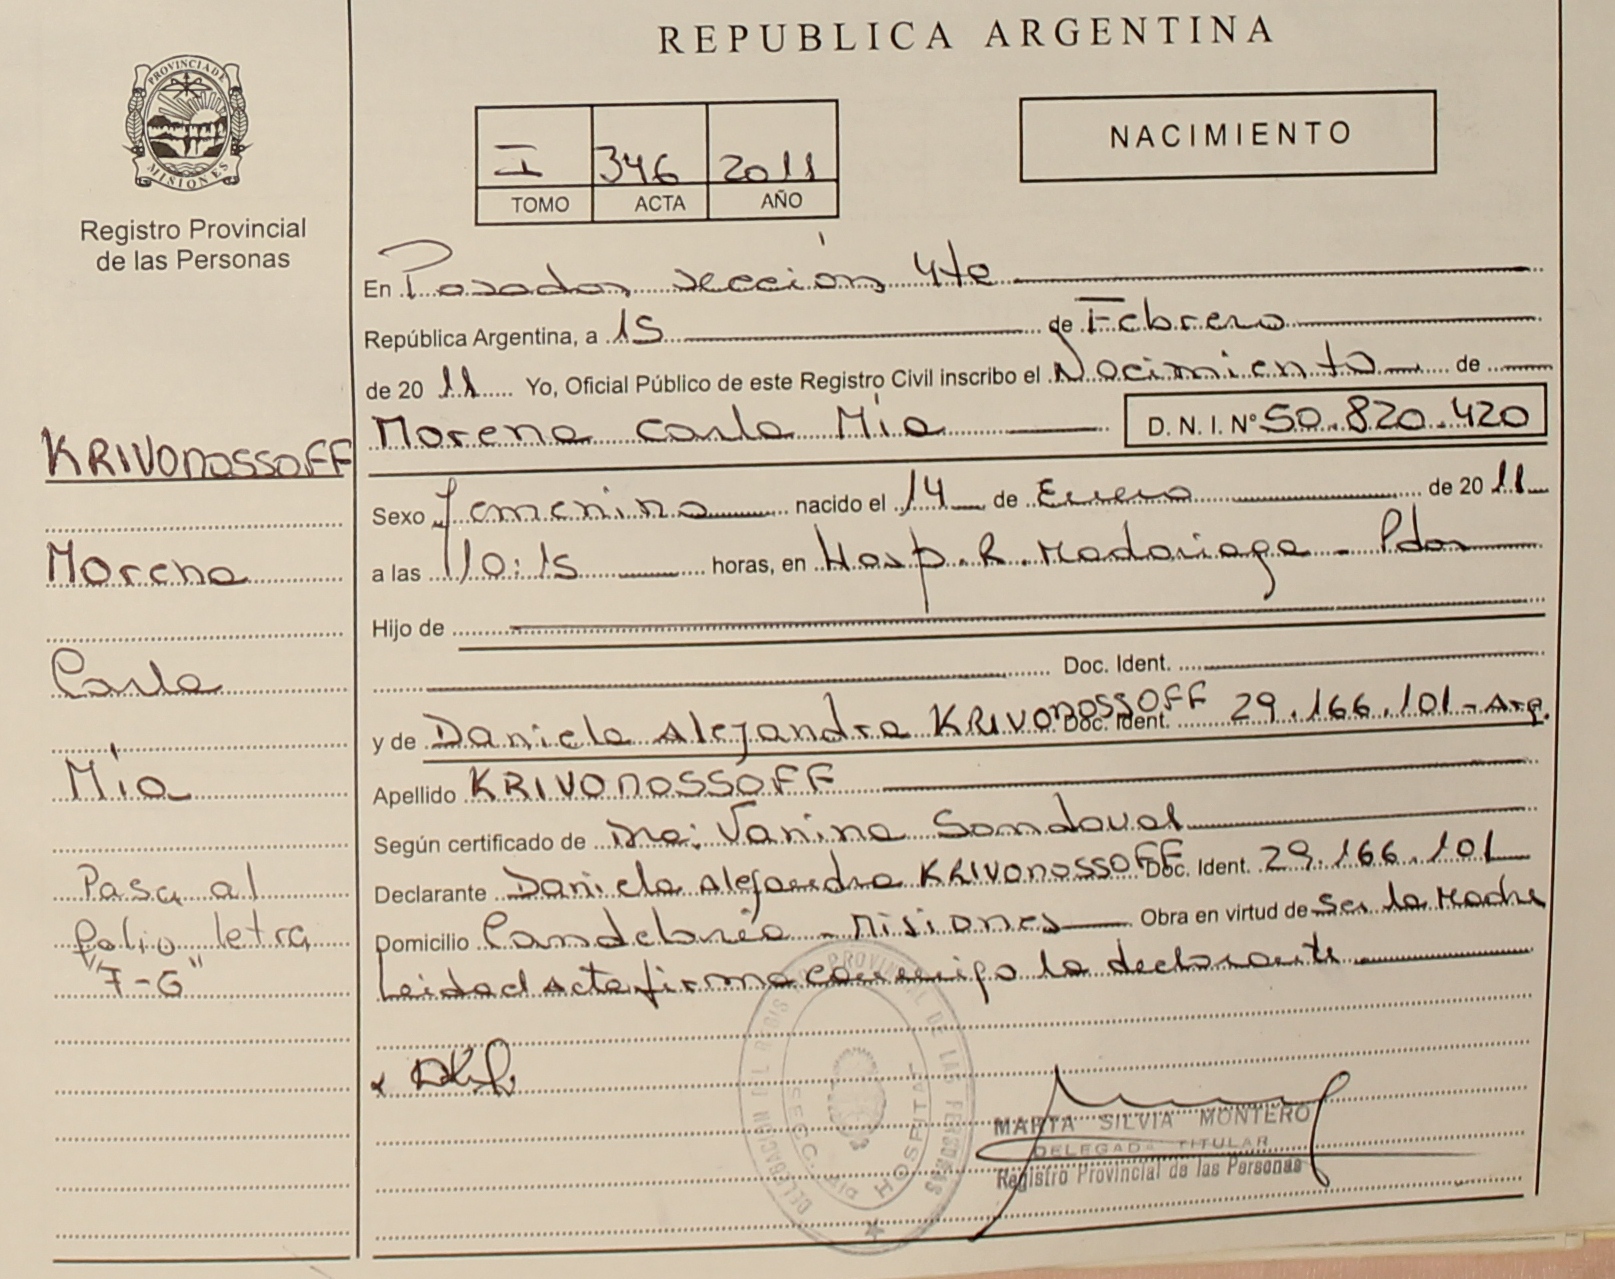 REPUBLICA ARGENTINA
PROVINCIA DE MISIONES
Registro Provincial
de las Personas
I 346 2011
TOMO ACTA AÑO
NACIMIENTO
En Posadas sección 4ta
República Argentina, a 15 de Febrero
de 20 11 Yo, Oficial Público de este Registro Civil inscribo el Nacimiento de
Morena Carla Mía D. N. I. Nº 50.820.420
Sexo Femenino nacido el 14 de Enero de 20 11
a las 10:15 horas, en Hosp. R. Madariaga - Pdas
Hijo de
Doc. Ident.
y de Daniela Alejandra KRIVONOSSOFF Doc. Ident. 29.166.101 - Arg.
Apellido KRIVONOSSOFF
Según certificado de Dra: Vanina Sandoval
Declarante Daniela Alejandra KRIVONOSSOFF Doc. Ident. 29.166.101
Domicilio Candelaria - Misiones Obra en virtud de Ser la Madre
Leida el Acta firma conmigo la declarante
KRIVONOSSOFF
Morena
Carla
Mía
Pasa al
folio letra
"F-G"
DELEGACION DEL REGISTRO PROVINCIAL DE LAS PERSONAS
SECC. 4ta HOSPITAL
MARTA SILVIA MONTERO
DELEGADA TITULAR
Registro Provincial de las Personas